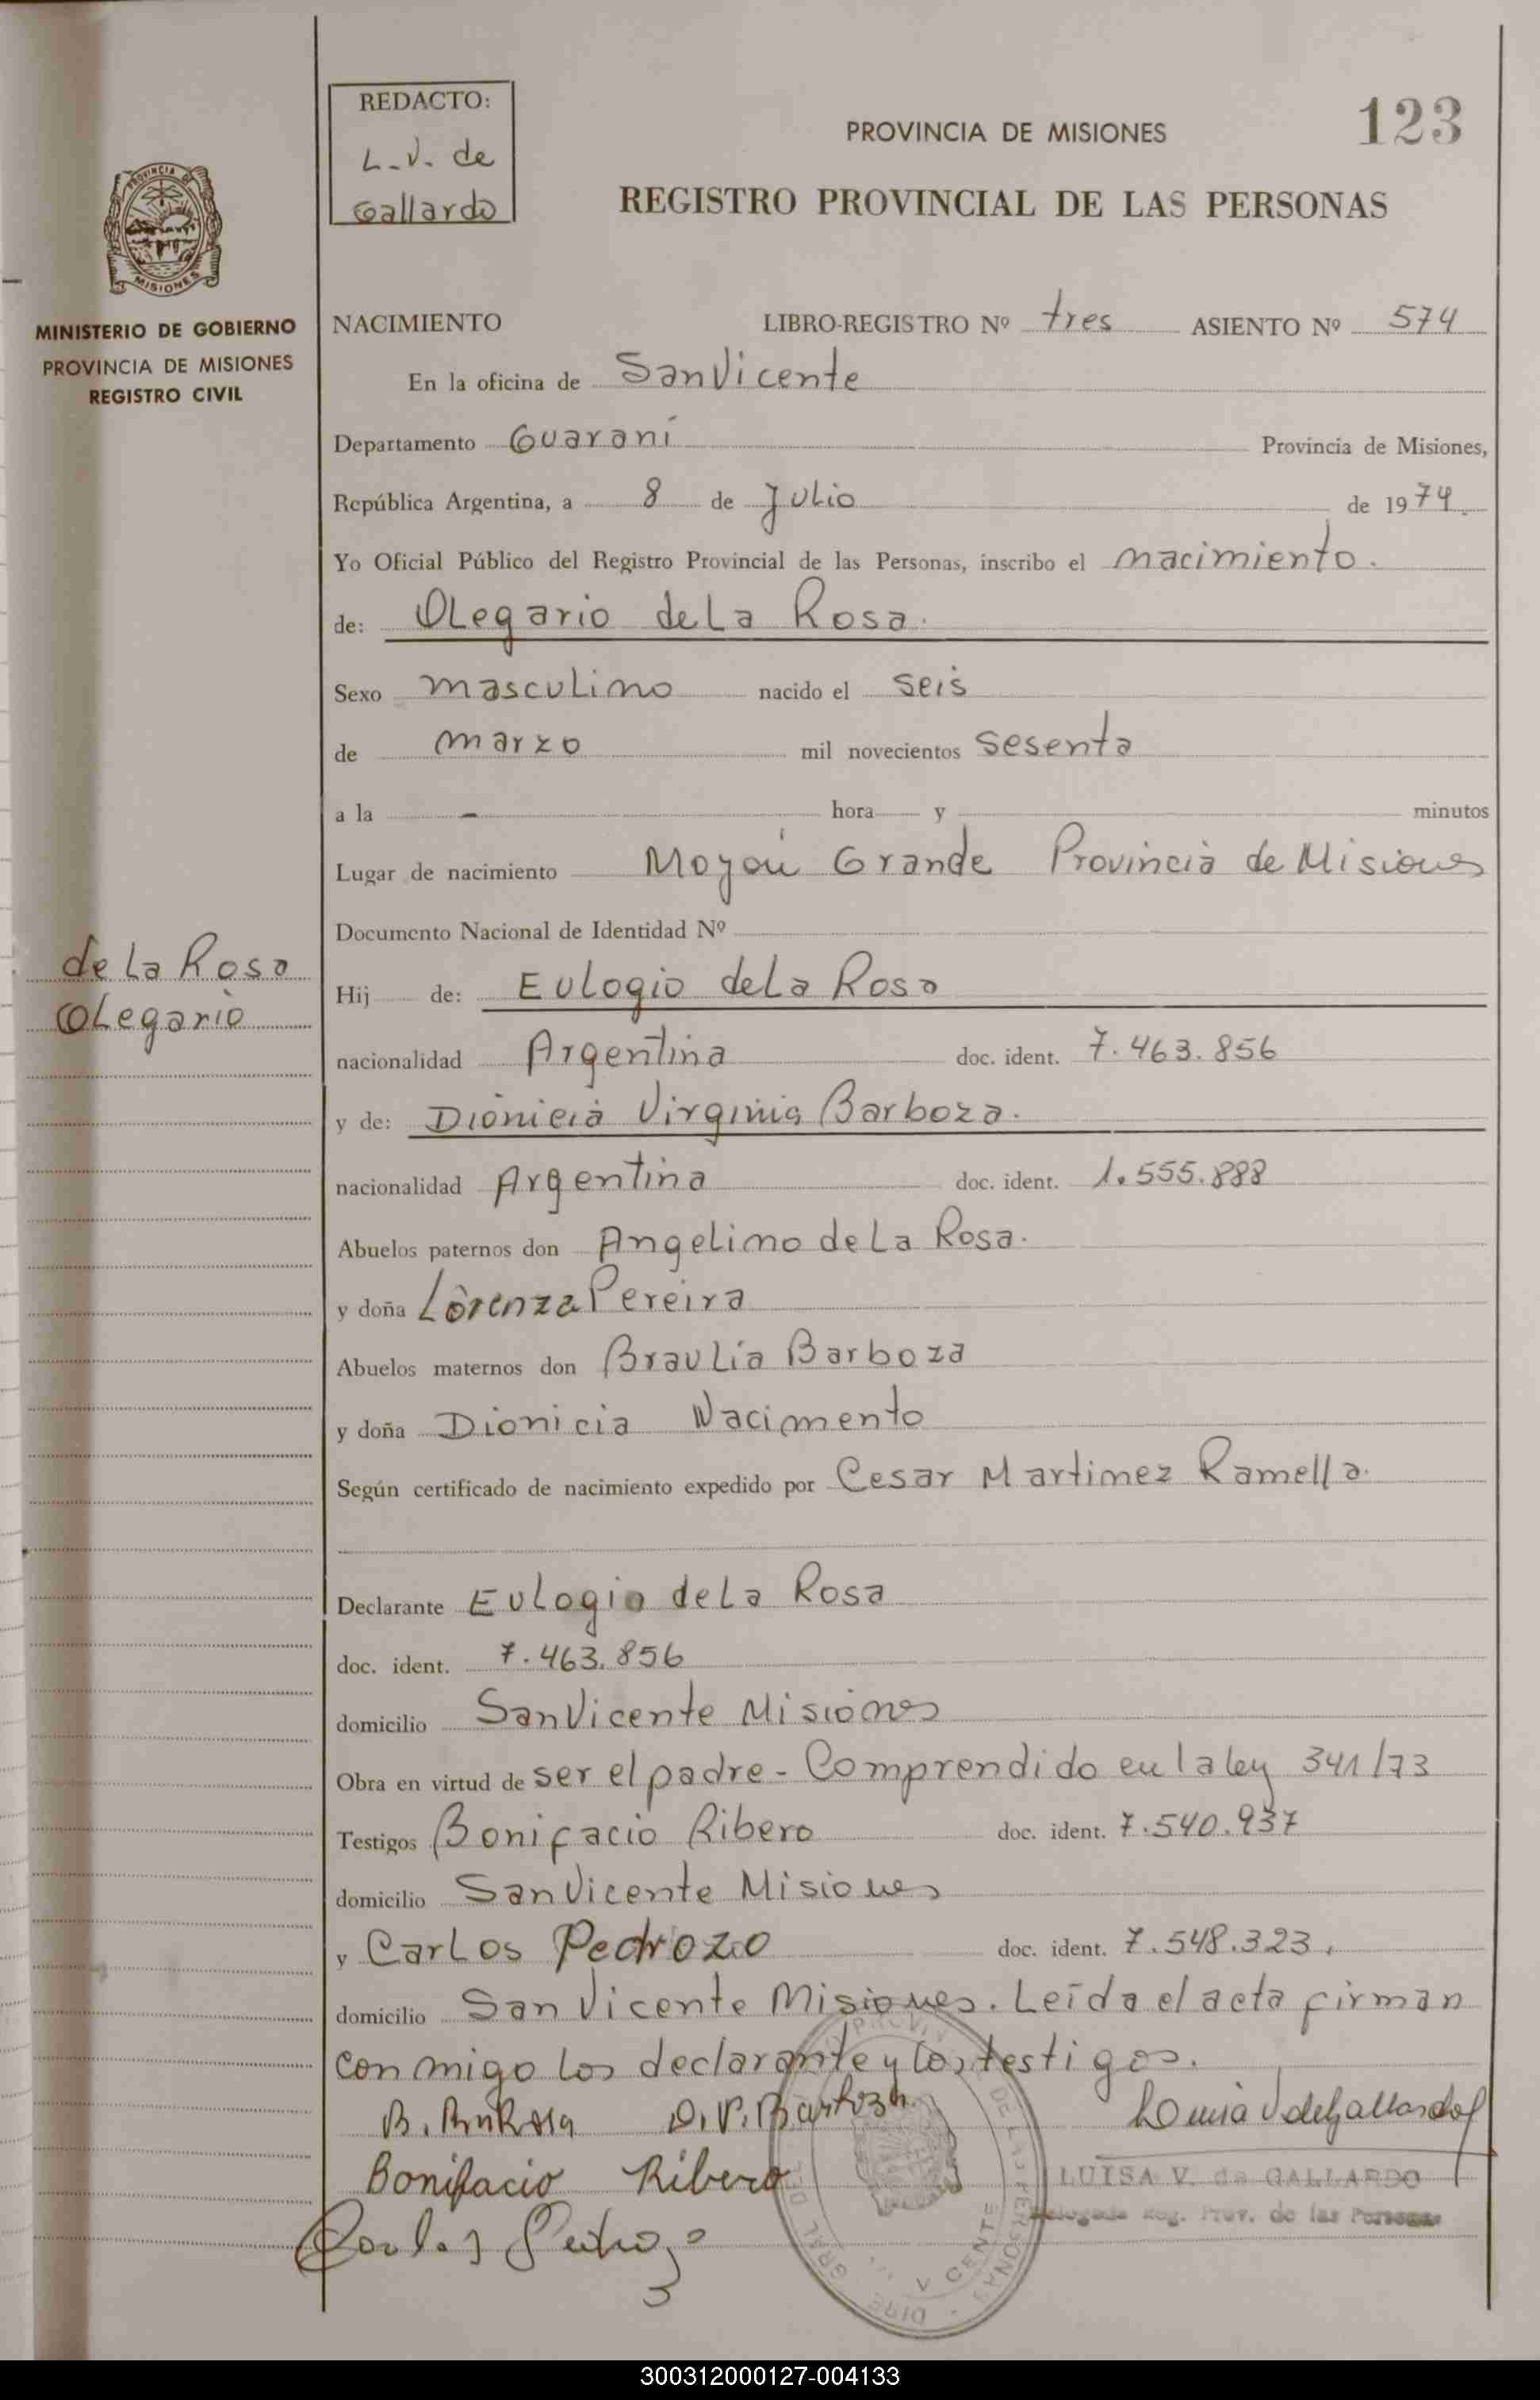 REDACTO:
L-V. de
Gallardo
PROVINCIA DE MISIONES
123
REGISTRO PROVINCIAL DE LAS PERSONAS
PROVINCIA DE
MISIONES
MINISTERIO DE GOBIERNO
PROVINCIA DE MISIONES
REGISTRO CIVIL
NACIMIENTO LIBRO-REGISTRO Nº tres ASIENTO Nº 574
En la oficina de San Vicente
Departamento Guaraní Provincia de Misiones,
República Argentina, a 8 de Julio de 1974.
Yo Oficial Público del Registro Provincial de las Personas, inscribo el nacimiento.
de: Olegario de La Rosa.
Sexo masculino nacido el seis
de marzo mil novecientos sesenta
a la - hora y minutos
Lugar de nacimiento Grande Provincia de Misiones
Documento Nacional de Identidad Nº
de La Rosa
Olegario
Hij de: Eulogio de La Rosa
nacionalidad Argentina doc. ident. 7.463.856
y de: Dionicia Virginia Barboza.
nacionalidad Argentina doc. ident. 1.555.888
Abuelos paternos don Angelino de La Rosa.
y doña Lorenza Pereira
Abuelos maternos don Braulia Barboza
y doña Dionicia Nacimento
Según certificado de nacimiento expedido por Cesar Martinez Ramella.
Declarante Eulogio de La Rosa
doc. ident. 7.463.856
domicilio San Vicente Misiones
Obra en virtud de ser el padre - Comprendido en la ley 341/73
Testigos Bonifacio Ribero doc. ident. 7.540.937
domicilio San Vicente Misiones
y Carlos Pedrozo doc. ident. 7.548.323.
domicilio San Vicente Misiones. Leída el acta firman
conmigo los declarante y los testigos.
D.V. Barboza
Luisa V de Gallardo
Bonifacio Ribero
LUISA V. de GALLARDO
Delegada Reg. Prov. de las Personas
Carlos Pedrozo
300312000127-004133